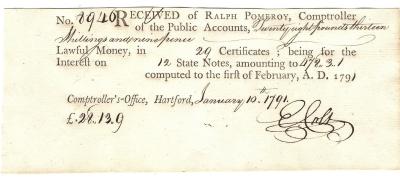 No. 8946 RECEIVED of RALPH POMEROY, Comptroller
of the Public Accounts, Twenty eight pounds thirteen
Shillings and nine pence
Lawful Money, in 29 Certificates; being for the
Interest on 12 State Notes, amounting to 478.3.1
computed to the first of February, A. D. 1791
Comptroller's-Office, Hartford, January 10th 1791.
£.28.13.9
E Colt